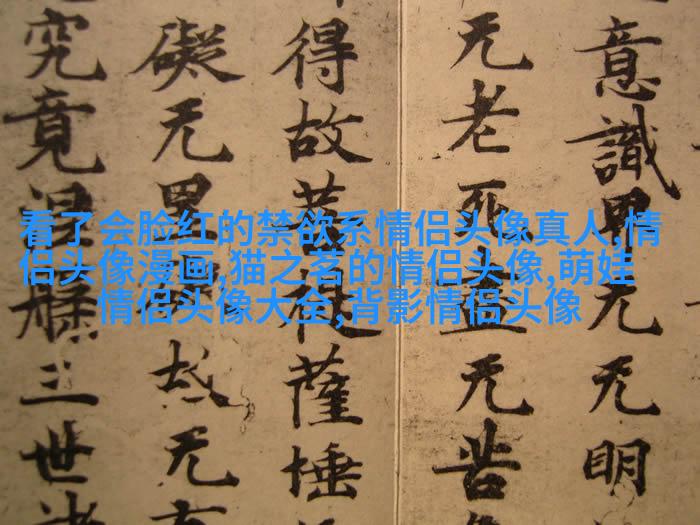 看了会脸红的禁欲系情侣头像真人,情
侣头像漫画,猫之茗的情侣头像,萌娃
情侣头像大全,背影情侣头像
意識界无无明
无老死盡无苦
得故菩提薩埵
礙无罣故无
究竟涅槃三世諸